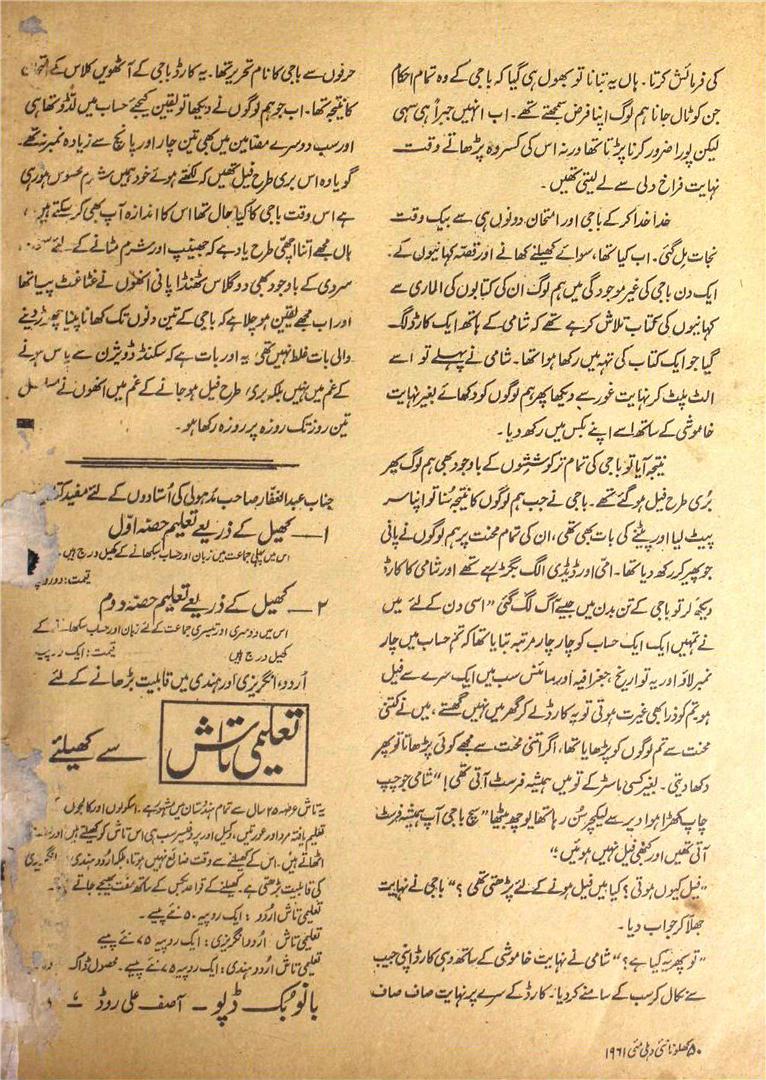 کی فرمائش کرتا۔ ہاں یہ بتانا تو بھول ہی گیا کہ باجی کے وہ تمام احکام
جن کو ٹال جانا ہم لوگ اپنا فرض سمجھتے تھے۔ اب انہیں جبراً ہی سہی
لیکن پورا ضرور کرنا پڑتا تھا ورنہ اس کی کسر وہ پڑھاتے وقت
نہایت فراخ دلی سے لے لیتی تھیں۔
خدا خدا کر کے باجی اور امتحان دونوں ہی سے بیک وقت
نجات مل گئی۔ اب کیا تھا، سوائے کھیلنے کھانے اور قصّہ کہانیوں کے۔
ایک دن باجی کی غیر موجودگی میں ہم لوگ ان کی کتابوں کی الماری سے
کہانیوں کی کتاب تلاش کر رہے تھے کہ شامی کے ہاتھ ایک کارڈ لگ
گیا جو ایک کتاب کی تہہ میں رکھا ہوا تھا۔ شامی نے پہلے تو اسے
الٹ پلٹ کر نہایت غور سے دیکھا پھر ہم لوگوں کو دکھائے بغیر نہایت
خاموشی کے ساتھ اسے اپنے بکس میں رکھ دیا۔
نتیجہ آیا تو باجی کی تمام تر کوششوں کے باوجود بھی ہم لوگ پھر
بُری طرح فیل ہو گئے تھے۔ باجی نے جب ہم لوگوں کا نتیجہ سُنا تو اپنا سر
پیٹ لیا اور پیٹنے کی بات بھی تھی، ان کی تمام محنت پر ہم لوگوں نے پانی
جو پھیر کر رکھ دیا تھا۔ امّی اور ڈیڈی الگ بگڑ رہے تھے اور شامی کا کارڈ
دیکھ کر تو باجی کے تن بدن میں جیسے آگ لگ گئی "اسی دن کے لئے میں
نے تمہیں ایک ایک حساب کو چار چار مرتبہ بتایا تھا کہ تم حساب میں چار
نمبر لاؤ اور یہ تو تاریخ، جغرافیہ اور سائنس سب میں ایک سرے سے فیل
ہو تم کو ذرا بھی غیرت ہوتی تو یہ کارڈ لے کر گھر میں نہیں گھستے، میں نے کتنی
محنت سے تم لوگوں کو پڑھایا تھا، اگر اتنی محنت سے مجھے کوئی پڑھاتا تو پھر
دکھا دیتی۔ بغیر کسی ماسٹر کے تو میں ہمیشہ فرسٹ آتی تھی!" شامی جو چپ
چاپ کھڑا ہوا دیر سے لیکچر سُن رہا تھا پوچھ بیٹھا "سچ باجی آپ ہمیشہ فرسٹ
آتی تھیں اور کبھی فیل نہیں ہوئیں"
"فیل کیوں ہوتی؟ کیا میں فیل ہونے کے لئے پڑھتی تھی؟" باجی نے نہایت
جھلّا کر جواب دیا۔
"تو پھر یہ کیا ہے؟" شامی نے نہایت خاموشی کے ساتھ وہی کارڈ اپنی جیب
سے نکال کر سب کے سامنے کر دیا۔ کارڈ کے سرے پر نہایت صاف صاف
حرفوں سے باجی کا نام تحریر تھا۔ یہ کارڈ باجی کے آٹھویں کلاس کے امتحان
کا نتیجہ تھا۔ اب جو ہم لوگوں نے دیکھا تو یقین کیجئے حساب میں لڈّو تھا ہی
اور سب دوسرے مضامین میں بھی تین چار اور پانچ سے زیادہ نمبر نہ تھے۔
گویا وہ اس بری طرح فیل تھیں کہ لکھتے ہوئے خود ہمیں شرم محسوس ہو رہی
ہے اس وقت باجی کا کیا حال تھا اس کا اندازہ آپ بھی کر سکتے ہیں،
ہاں مجھے اتنا اچھّی طرح یاد ہے کہ جھینپ اور شرم مٹانے کے لئے
سردی کے باوجود بھی دو گلاس ٹھنڈا پانی انھوں نے غٹا غٹ پیا تھا
اور اب مجھے یقین ہو چلا ہے کہ باجی کے تین دنوں تک کھانا پینا چھوڑ دینے
والی بات غلط نہیں تھی یہ اور بات ہے کہ سکنڈ ڈویژن سے پاس ہونے
کے غم میں نہیں بلکہ بری طرح فیل ہو جانے کے غم میں انھوں نے مسلسل
تین روز تک روزہ پر روزہ رکھا ہو۔
جناب عبدالغفار صاحب مدہولی کی اُستادوں کے لئے مفید
۱— کھیل کے ذریعے تعلیم حصّہ اوّل
اس میں پہلی جماعت میں زبان اور حساب سکھانے کے کھیل درج ہیں۔
قیمت: دو روپے
۲— کھیل کے ذریعے تعلیم حصّہ دوم
اس میں دوسری اور تیسری جماعت کے لئے زبان اور حساب سکھانے کے
کھیل درج ہیں قیمت: ایک روپیہ
اُردو، انگریزی اور ہندی میں قابلیت بڑھانے کے لئے
تعلیمی تاش سے کھیلئے
یہ تاش عرصہ ۲۵ سال سے تمام ہندُستان میں مشہور ہے۔ اسکولوں اور کالجوں
تعلیم یافتہ مرد اور عورتیں، وکیل اور پروفیسر سب ہی اس تاش کو کھیلتے ہیں اور
اٹھاتے ہیں۔ اس کے کھیلنے سے وقت ضائع نہیں ہوتا، بلکہ اُردو ہندی انگریزی
کی قابلیت بڑھتی ہے۔ کھیلنے کے قواعد بکس کے ساتھ مفت بھیجے جاتے
تعلیمی تاش اُردو: ایک روپیہ ۵۰ نئے پیسے۔
تعلیمی تاش اُردو انگریزی: ایک روپیہ ۷۵ نئے پیسے
تعلیمی تاش اُردو ہندی: ایک روپیہ ۷۵ نئے پیسے۔ محصول ڈاک
بانو بُک ڈپو۔ آصف علی روڈ،
۵۰ کھلونا نئی دہلی مئی ۱۹۶۱